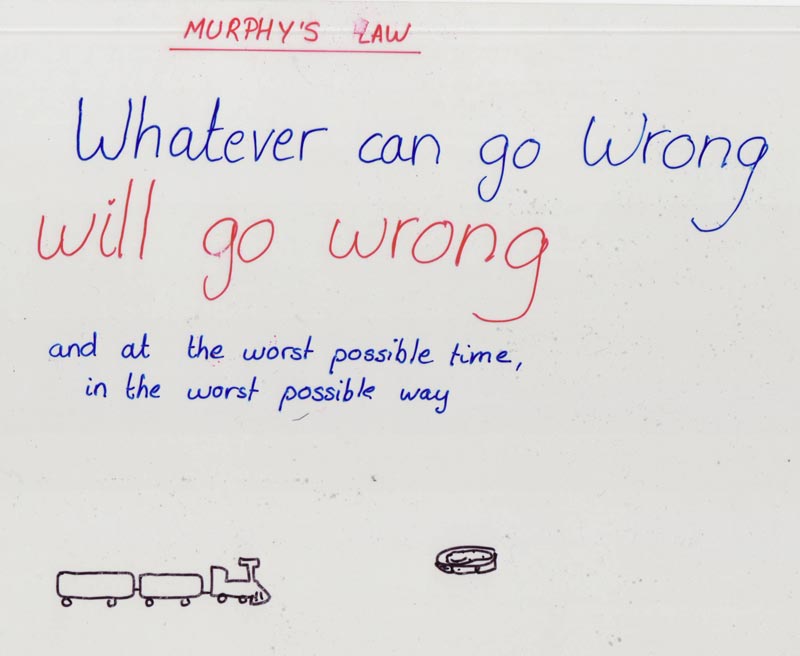 MURPHY'S LAW
Whatever can go Wrong
will go wrong
and at the worst possible time,
in the worst possible way